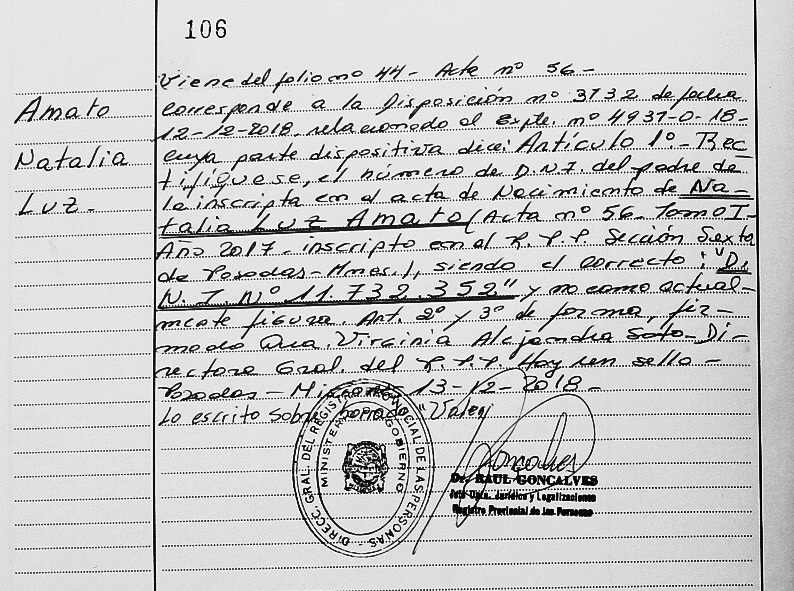 106
Viene del folio nº 44 - Acta nº 56 -
Amato
corresponde a la Disposición nº 3732 de fecha
12-12-2018. relacionado al Expte. nº 4937-O-18-
Natalia
cuya parte dispositiva dice: Artículo 1º.- Rec
tifíquese, el número de D.N.I. del padre de
Luz -
la inscripta en el acta de Nacimiento de Na-
talia Luz Amato (Acta nº 56 - Tomo I -
Año 2017 - inscripto en el R.P.P. Sección Sexta
de Posadas - Mnes.), siendo el correcto: "D.
N. I. Nº 11.732.352" y no como actual-
mente figura. Art. 2º y 3º de forma, fir-
mado Dra. Virginia Alejandra Soto - Di-
rectora Gral. del R.P.P. Hay un sello -
Posadas - Misiones 13-12-2018 -
Lo escrito sobre borrado "Vale"
DIRECC. GRAL. DEL REGISTRO PROVINCIAL DE LAS PERSONAS
MINISTERIO DE GOBIERNO
Goncalves
Dr. RAUL GONCALVES
Jefe Dpto. Jurídico y Legalizaciones
Registro Provincial de las Personas